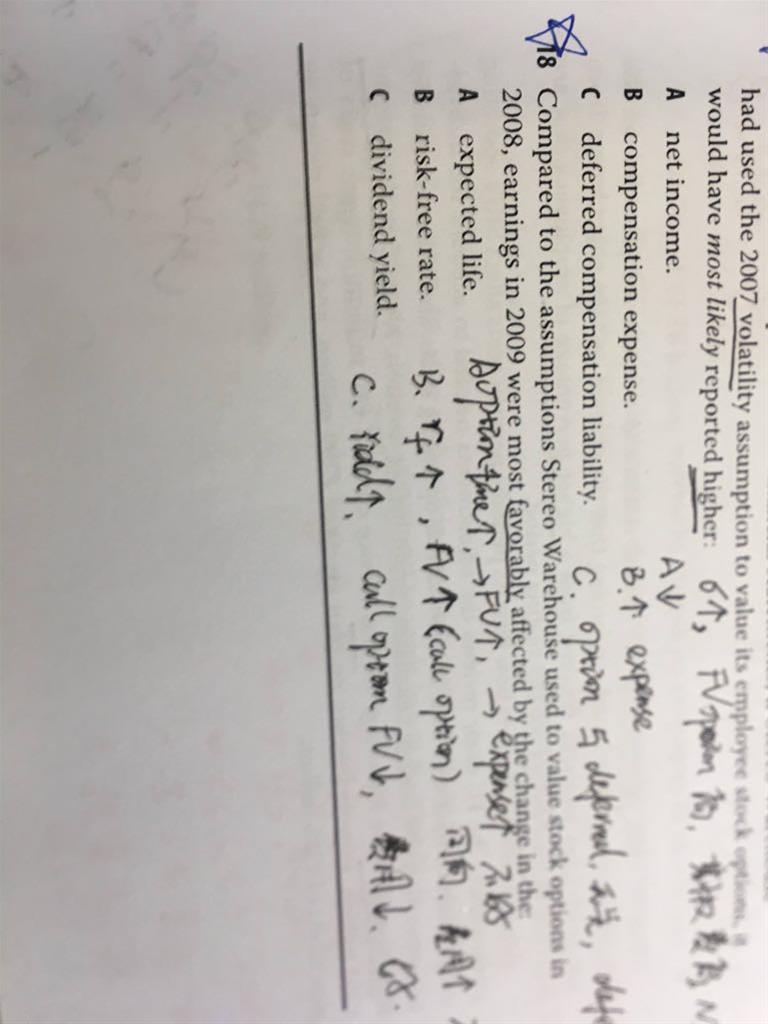 had used the 2007 volatility assumption to value its employee stock options, it
would have most likely reported higher: σ↑, FV option
A net income. A↓
B compensation expense. B.↑ expense
C deferred compensation liability. C. option 与 deferred,
18 Compared to the assumptions Stereo Warehouse used to value stock options in
2008, earnings in 2009 were most favorably affected by the change in the:
A expected life. A option time↑, →FV↑, → expense↑
B risk-free rate. B. rf ↑, FV↑ (call option) 同向. 费用↑
C dividend yield. C. call option FV↓, 费用↓.